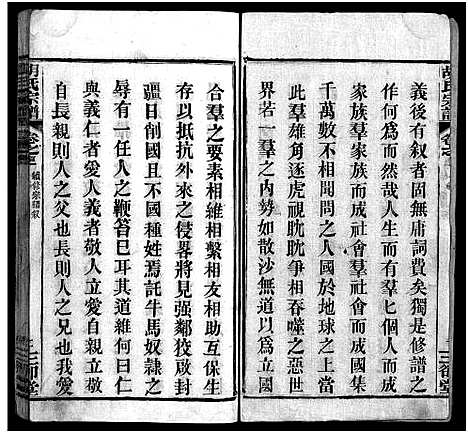 義後有叙者固無庸詞費矣獨是修譜之
作何爲而然哉人生而有羣匕個人而成
家族羣家族而成社會羣社會而成國集
千萬數不相同之人國於地球之上當
此羣雄角逐虎視眈眈爭相吞噬之惡世
界若一羣之內勢如散沙無以爲立國
合羣之要素相維相繫相友相助互保生
存以抵抗外來之侵畧將見强鄰狡啟封
疆日削國且不國種姓焉託牛馬奴隷之
辱有一任人之鞭笞巳耳其道維何曰仁
與義仁者愛人義者敬人立愛自親立敬
自長親則人之父也長則人之兄也我愛
胡氏宗譜
卷之一
續修宗譜叙